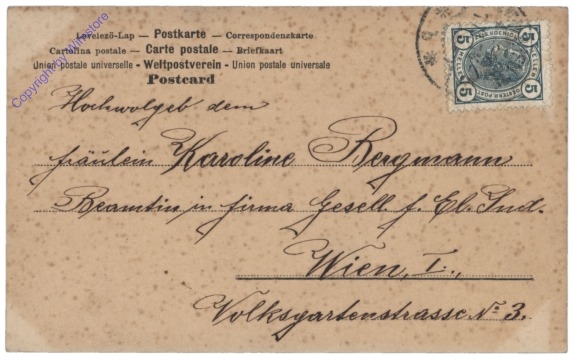 Levelező-Lap — Postkarte — Correspondenzkarte
Cartolina postale — Carte postale — Briefkaart
Union postale universelle - Weltpostverein - Union postale universale
Postcard
Hochwolgeb dem
Fräulein Karoline Bergmann
Beamtin in firma Gesell. f. El. Ind.
Wien, I.,
Volksgartenstrasse № 3.
5 5
5 5
Copyright by